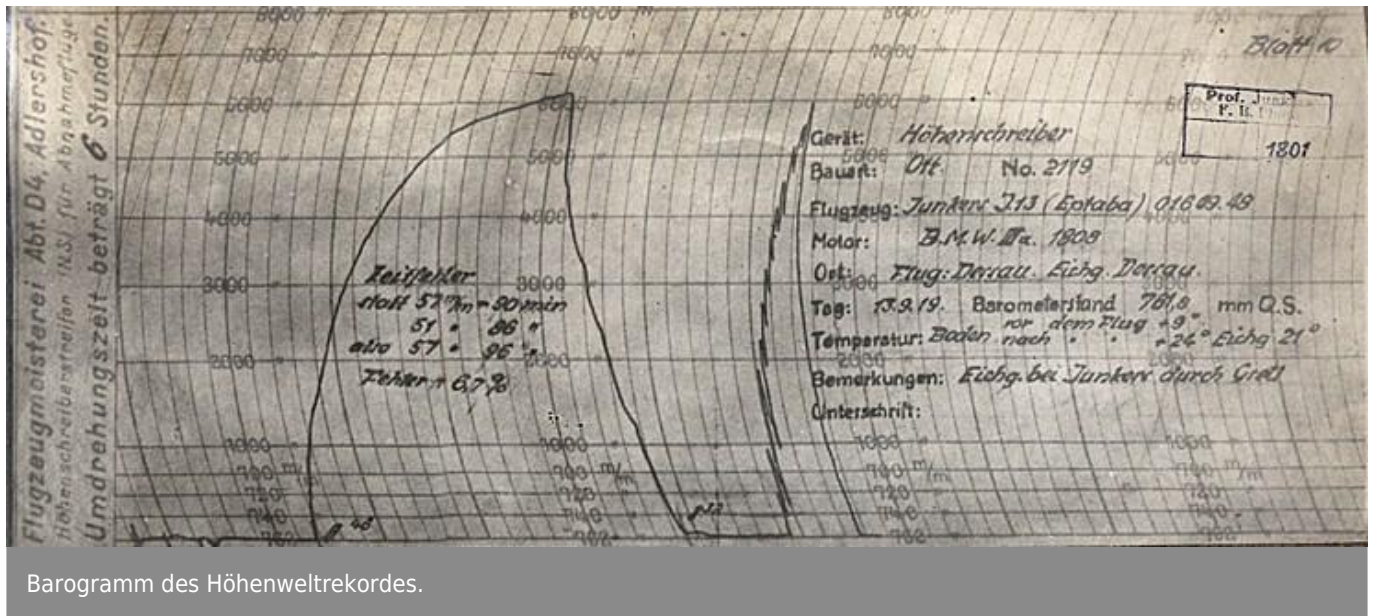 Flugzeugmeisterei Abt. D4, Adlershof.
Höhenschreiberstreifen für Abnahmeflüge
Umdrehungszeit beträgt 6 Stunden.
8000 m 8000 m 8000 8000
7000 7000 7000
6000 6000 6000
5000 5000 5000 5000
4000 4000
3000 3000
2000 2000 2000
1000 1000 1000 1000
700 m/m 700 m/m 700 m/m 700 m/m
720 720 720 720
740 740 740 740
762 762 762 762
Zeitfehler
statt 57 m/m = 90 min
51 " 86 "
also 57 " 96 "
Fehler + 6,7 %
Blatt 10
Prof. Junkers
1801
Gerät: Höhenschreiber
Bauart: Ott. No. 2119
Flugzeug: Junkers J13 (Eptaba) 01609.49
Motor: B.M.W. IIIa. 1808
Ort: Flug: Dessau. Eichg. Dessau.
Tag: 13.9.19. Barometerstand 761,8 mm Q.S.
Temperatur: Boden vor dem Flug +9°
nach " " +24° Eichg 21°
Bemerkungen: Eichg. bei Junkers durch
Unterschrift:
Barogramm des Höhenweltrekordes.